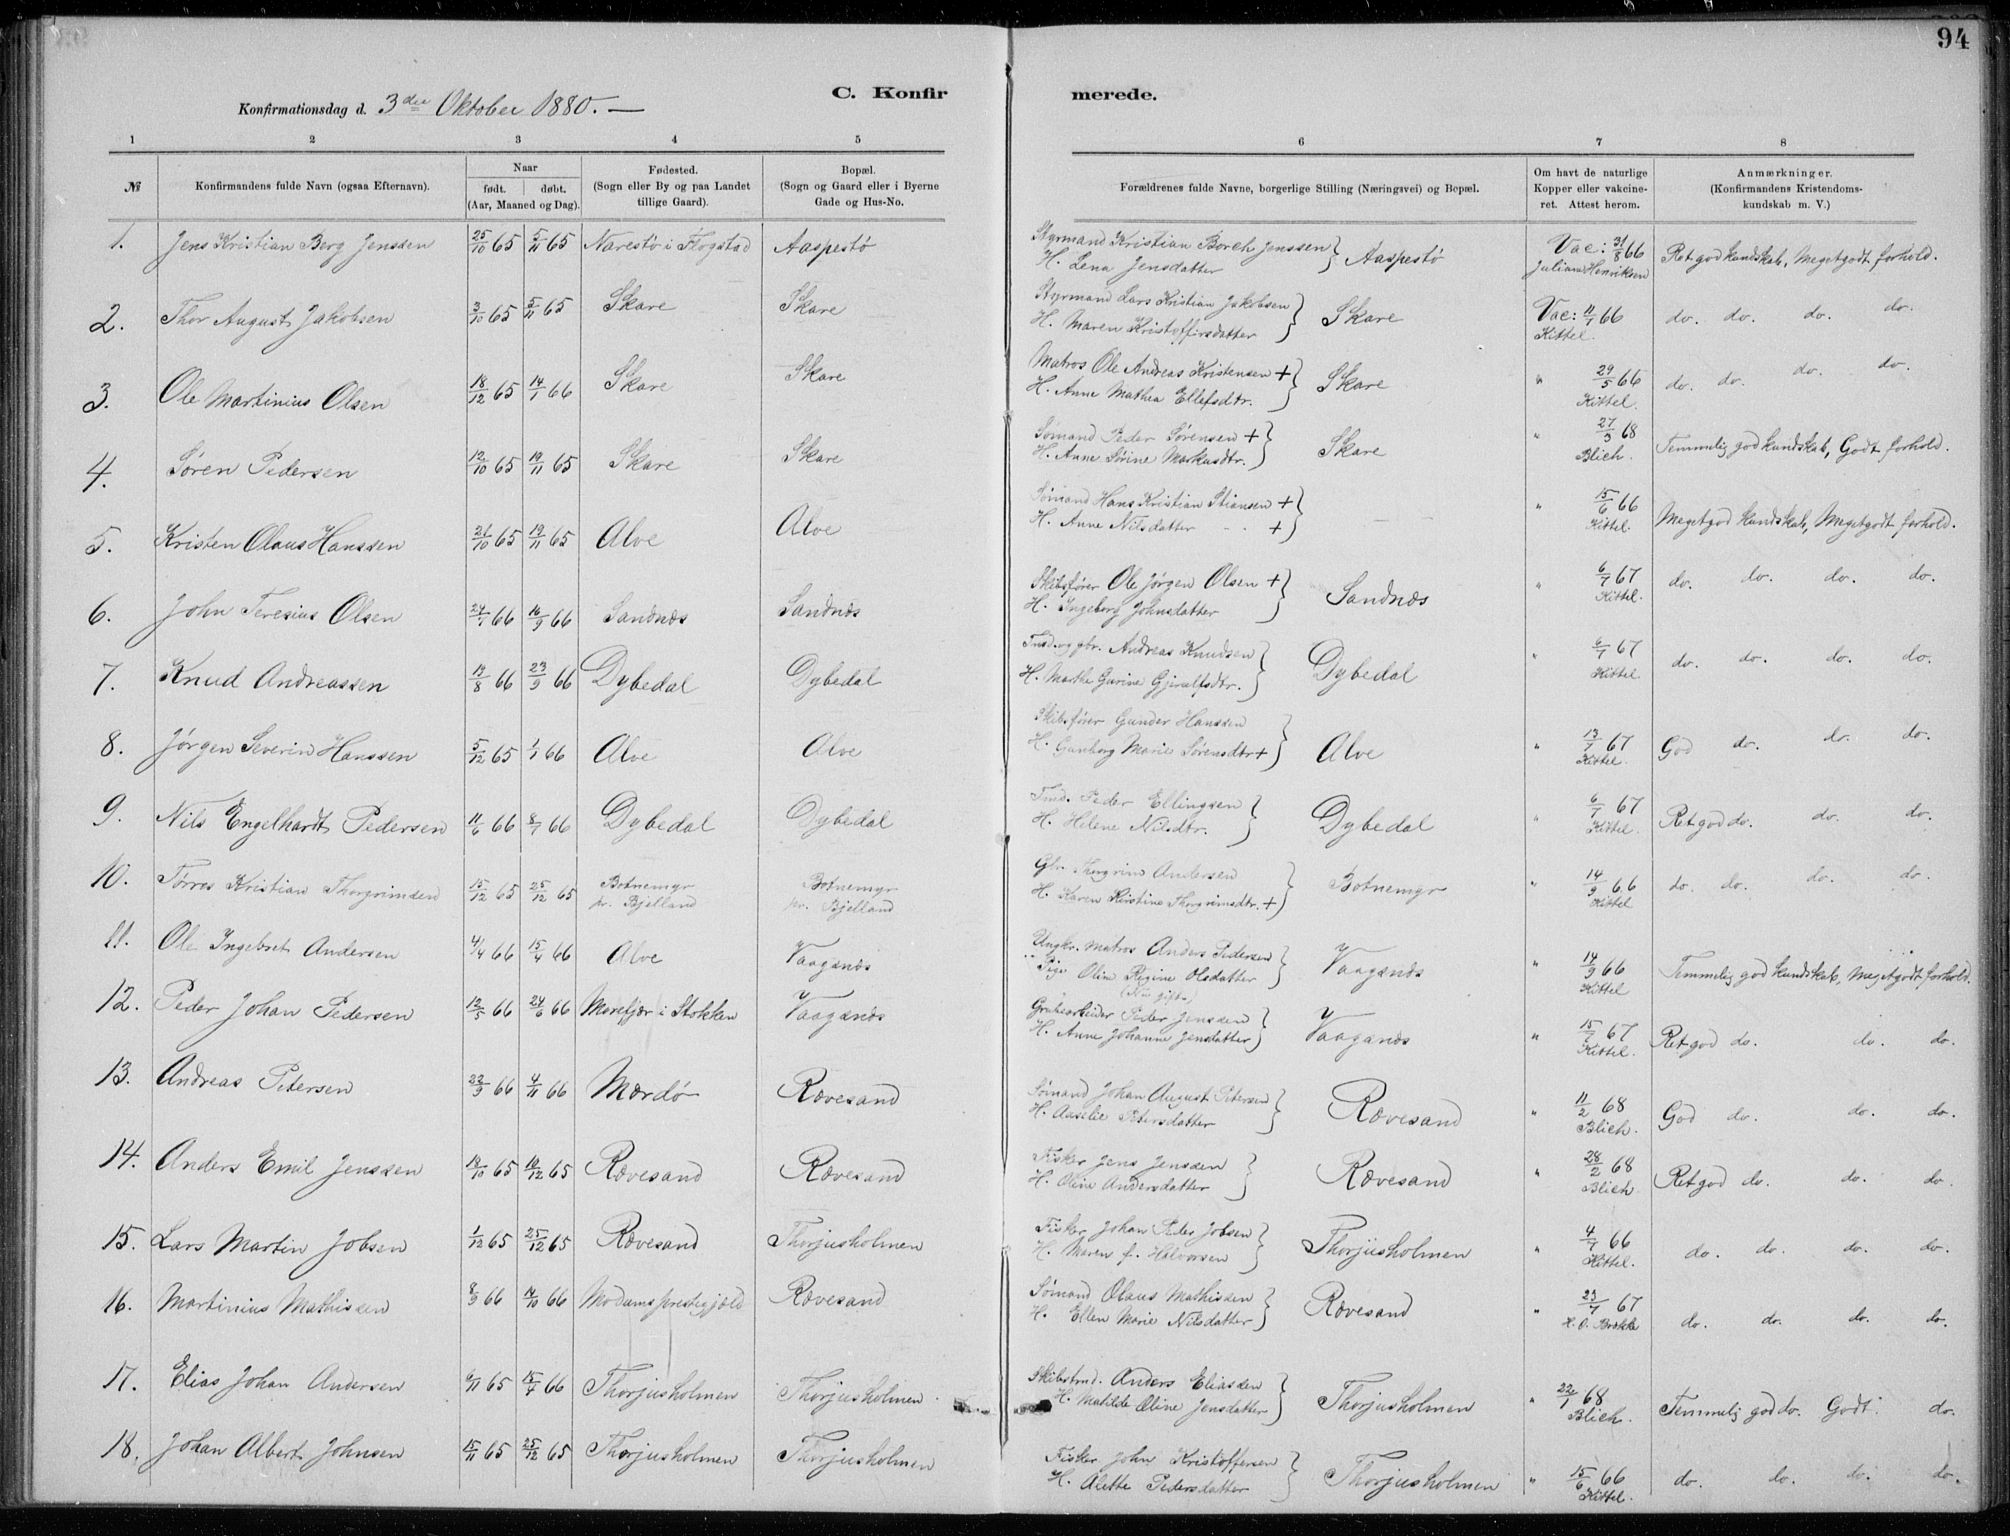 94
C. Konfirmerede.
Konfirmationsdag d. 3die Oktober 1880. —
1 2 3 4 5 6 7 8
№ Konfirmandens fulde Navn (ogsaa Efternavn). Naar født. døbt. (Aar, Maaned og Dag). Fødested. (Sogn eller By og paa Landet tillige Gaard). Bopæl. (Sogn og Gaard eller i Byerne Gade og Hus-No. Forældrenes fulde Navne, borgerlige Stilling (Næringsvei) og Bopæl. Om havt de naturlige Kopper eller vakcineret. Attest herom. Anmærkninger. (Konfirmandens Kristendomskundskab m. V.)
1. Jens Kristian Berg Jenssen 25/10 65 5/11 65 Narestø i Flogstad Aaspestø Styrmand Kristian Borch Jenssen H. Lena Jensdatter } Aaspestø Vac: 31/8 66 Juliana Henriksen Ret god kundskab, Meget godt forhold.
2. Thor August Jakobsen 3/10 65 5/11 65 Skare Skare Styrmand Lars Kristian Jakobsen H. Maren Kristoffersdatter } Skare Vac: 11/7 66 Kittel. do. do. do. do.
3. Ole Martinius Olsen 18/12 65 14/1 66 Skare Skare Matros Ole Andreas Kristensen + H. Anne Mathea Ellefsdtr. } Skare " 29/5 66 Kittel. do. do. do. do.
4. Søren Pedersen 12/10 65 19/11 65 Skare Skare Sømand Peder Sørensen + H. Anne Sørine Markusdtr. } Skare " 27/3 68 Blich. Temmelig god kundskab, Godt forhold.
5. Kristen Olaus Hanssen 21/10 65 19/11 65 Alve Alve Sømand Hans Kristian Stiansen + H. Anne Nilsdatter + } " 15/6 66 Kittel Meget god kundskab, Meget godt forhold.
6. John Teresius Olsen 24/7 66 16/9 66 Sandnæs Sandnæs Skibsfører Ole Jørgen Olsen + H. Ingeborg Johnsdatter } Sandnæs " 6/7 67 Kittel. do. do. do. do.
7. Knud Andreassen 13/8 66 23/9 66 Dybedal Dybedal Tmd. og gbr. Andreas Knudsen H. Marthe Gurine Gjerulfsdtr. } Dybedal " 6/7 67 Kittel do. do. do. do.
8. Jørgen Severin Hanssen 5/12 65 1/1 66 Alve Alve Skibsfører Gunder Hanssen H. Gunborg Marie Sørensdtr + } Alve " 13/7 67 Kittel. God do. do. do.
9. Nils Engelhardt Pedersen 11/6 66 8/7 66 Dybedal Dybedal Tmd. Peder Ellingsen H. Helene Nilsdtr. } Dybedal " 6/7 67 Kittel Ret god do. do. do.
10. Tørres Kristian Thorgrimsen 15/12 65 25/12 65 Botnemyr pr. Bjelland Botnemyr pr. Bjelland Gbr. Thorgrim Andersen H. Karen Kirstine Thorgrimsdtr. + } Botnemyr " 14/9 66 Kittel do. do. do. do.
11. Ole Ingebret Andersen 4/4 66 15/4 66 Alve Vaagsnæs Ungkr. Matros Anders Pedersen Pige Oline Regine Olsdatter (Nu gifte) } Vaagsnæs " 14/9 66 Kittel Temmelig god kundskab, Meget godt forhold.
12. Peder Johan Pedersen 12/5 66 24/6 66 Morefjær i Stokken Vaagsnæs Grubearbeider Peder Jenssen H. Anne Johanne Jensdatter } Vaagsnæs " 15/7 67 Kittel. Ret god do. do. do.
13. Andreas Petersen 22/9 66 4/11 66 Mærdø Rævesand Sømand Johan August Petersen H. Aaselie Petersdatter } Rævesand " 11/2 68 Blich. God do. do. do.
14. Anders Emil Jenssen 19/10 65 10/12 65 Rævesand Rævesand Fisker Jens Jenssen H. Oline Andersdatter } Rævesand " 28/2 68 Blich. Ret god do. do. do.
15. Lars Martin Jobsen 1/12 65 25/12 65 Rævesand Thorjusholmen Fisker Johan Peder Jobsen H. Maren f. Halvorsen } Thorjusholmen " 4/7 66 Kittel. do. do. do. do.
16. Martinius Mathissen 8/9 66 14/10 66 Modums prestegjæld Rævesand Sømand Olaus Mathissen H. Ellen Marie Nilsdatter } Rævesand " 23/7 67 H. O. Brække do. do. do. do.
17. Elias Johan Andersen 6/11 65 15/4 66 Thorjusholmen Thorjusholmen. Skibstmd. Anders Eliassen H. Matilde Oline Jensdatter } Thorjusholmen " 22/1 68 Blich. Temmelig god do. Godt do.
18. Johan Albert Johnsen 15/11 65 25/12 65 Thorjusholmen Thorjusholmen Fisker John Kristoffersen H. Alette Pedersdatter } Thorjusholmen " 15/6 66 Kittel. do. do. do. do.